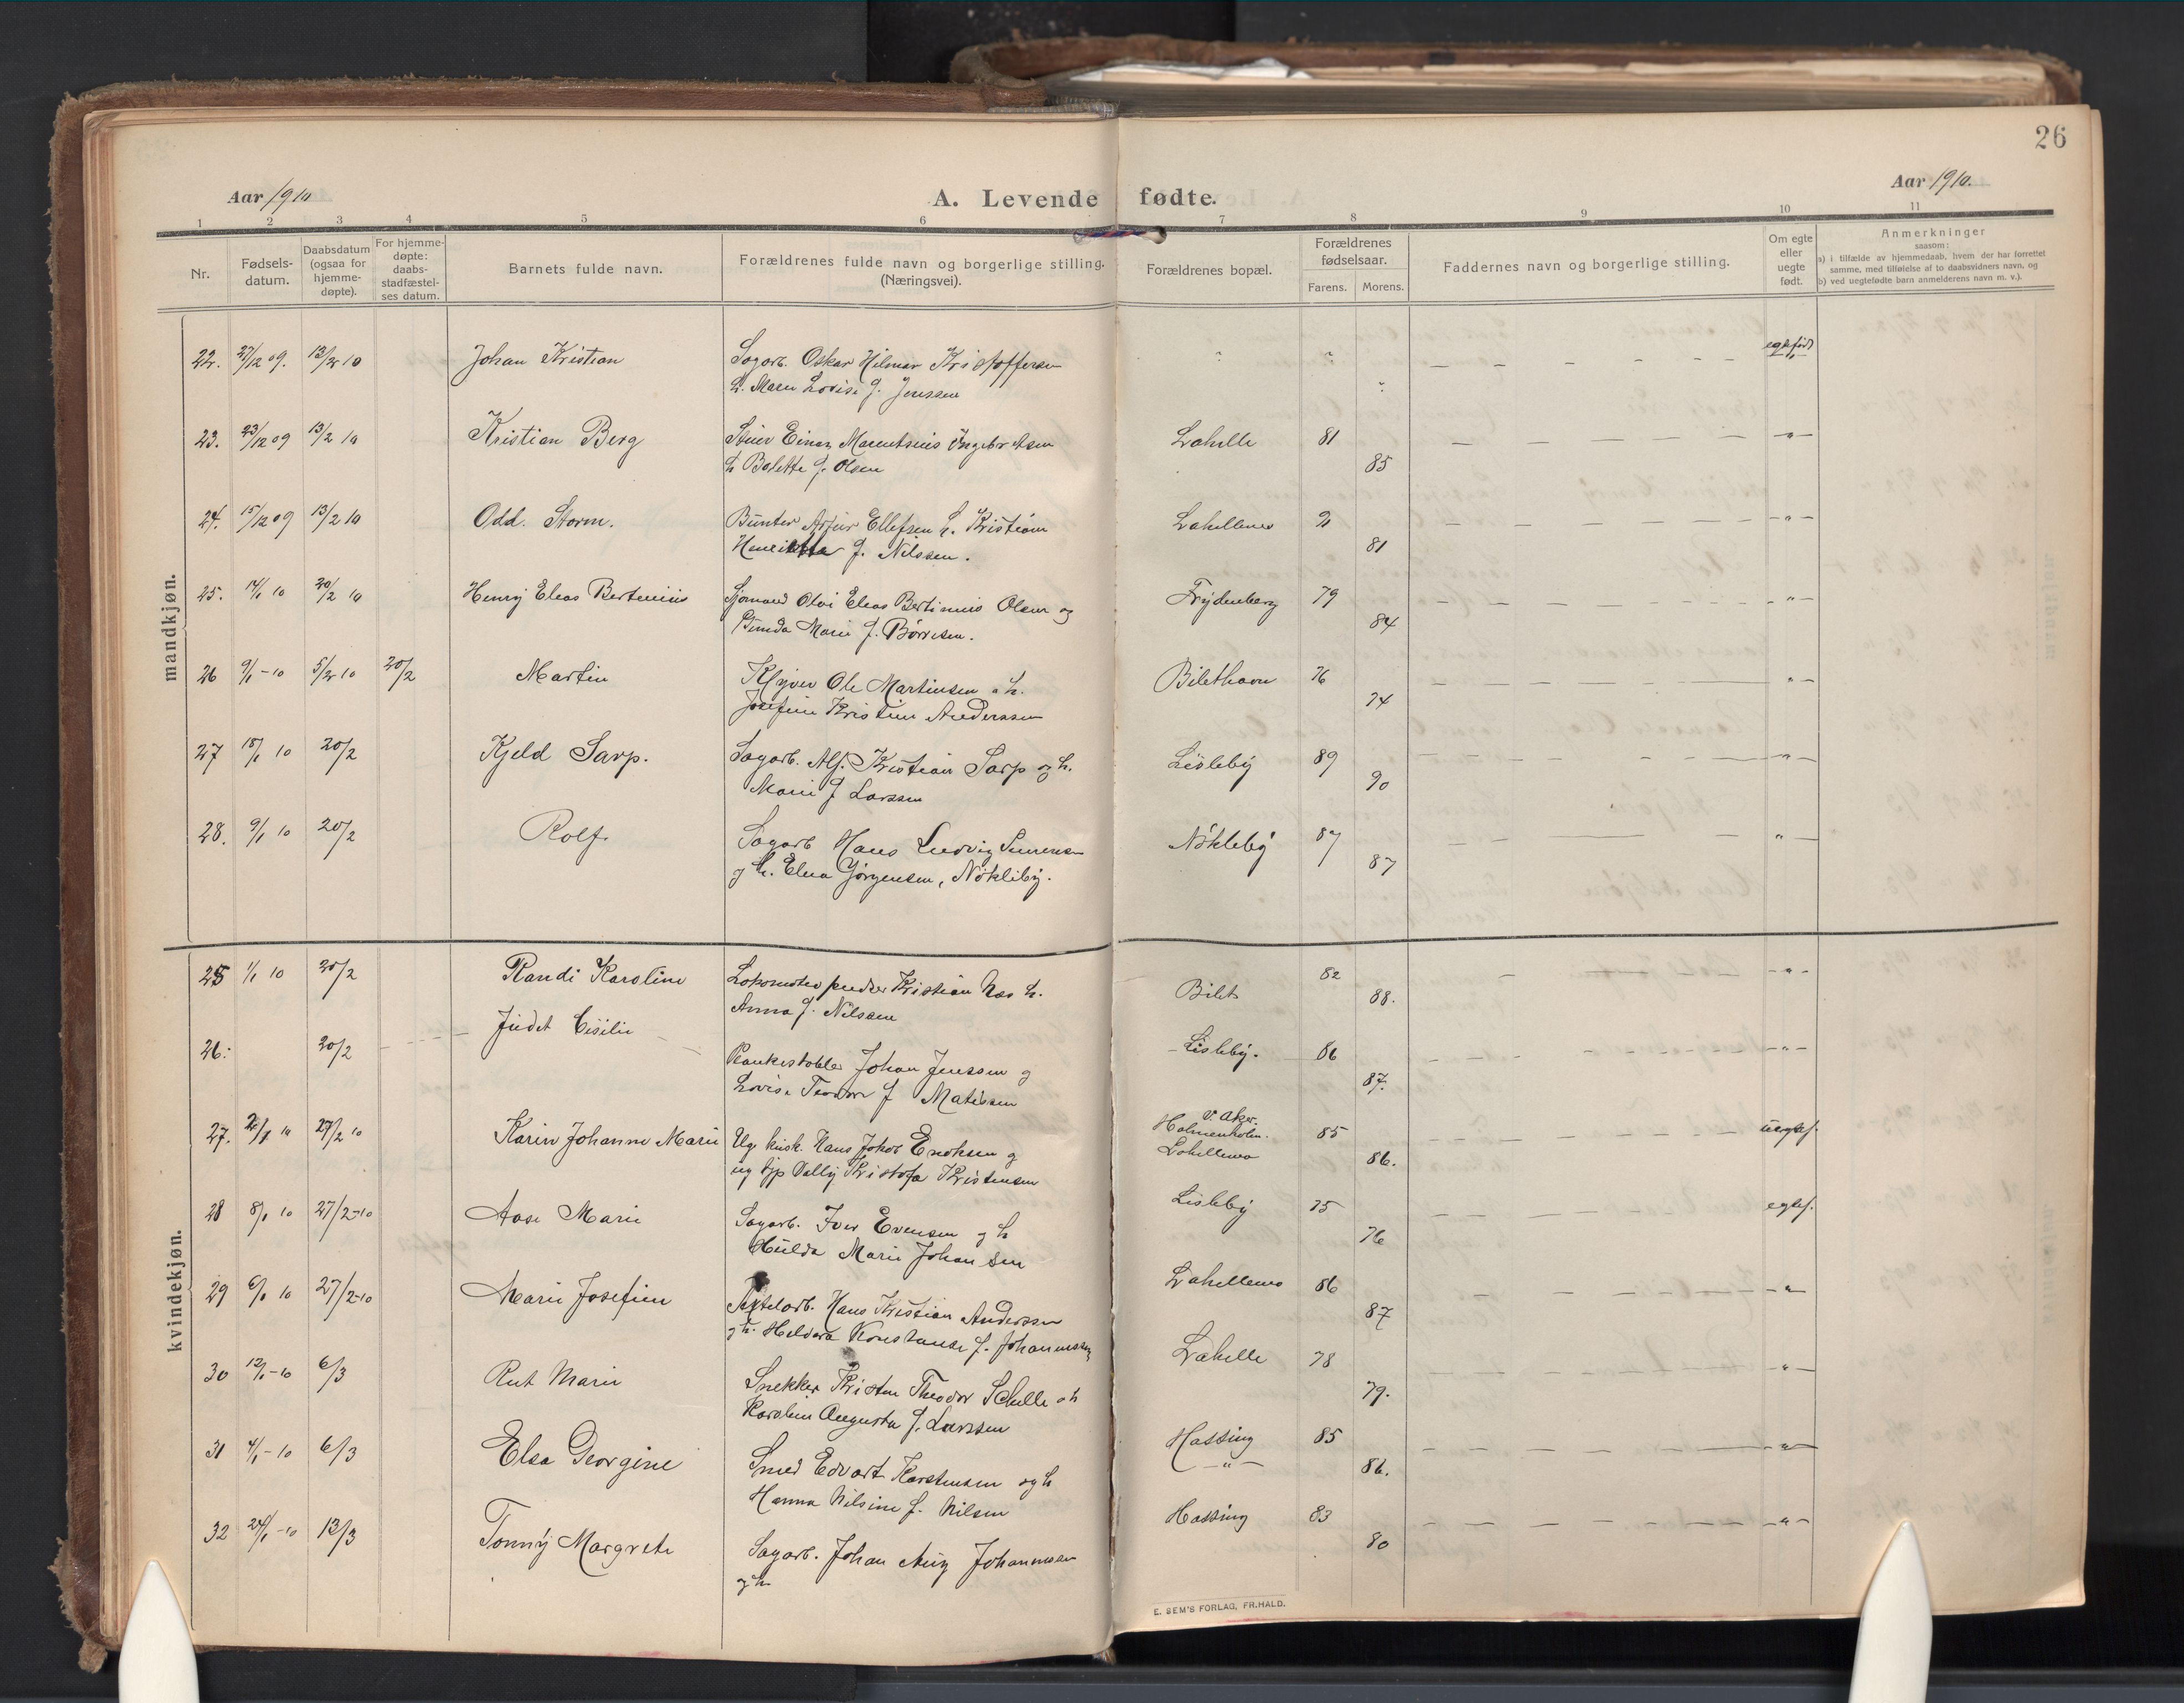 26
Aar 1910
A. Levende fødte.
Aar 1910.
1 2 3 4 5 6 7 8 9 10 11
Nr.
Fødsels-
datum.
Daabsdatum
(ogsaa for
hjemme-
døpte).
For hjemme-
døpte:
daabs-
stadfæstel-
ses datum.
Barnets fulde navn.
Forældrenes fulde navn og borgerlige stilling.
(Næringsvei).
Forældrenes bopæl.
Forældrenes
fødselsaar.
Farens. Morens.
Faddernes navn og borgerlige stilling.
Om egte
eller
uegte
født.
Anmerkninger
saasom:
a) i tilfælde av hjemmedaab, hvem der har forrettet
samme, med tilføielse af to daabsvidners navn, og
b) ved uegtefødte barn anmelderens navn m. v.).
mandkjøn.
22. 27/12 09. 13/2 10 Johan Kristian Sagarb. Oskar Hilmar Kristoffersen " " egtefødt
h. Maren Lovise f. Jenssen "
23. 23/12 09 13/2 10 Kristian Berg Einar Ingebretsen Lahelle 81 — " —
h Bolette f. Olsen 85
24. 15/12 09 13/2 10 Odd. Storm. Artur Ellefsen h. Kristiane Lahellemo — " —
Henriette f. Nilssen. 81
25. 14/1 10 20/2 10 Henry Elias Bertinius Sjømand Elias Bertinius Olsen og Frydenberg 79 — " —
Gunda Marie f. Børresen. 84
26 9/1 - 10 5/2 10 20/2 Martin Ole Martinsen o h. Bilethavn 76 — " —
Josefine Kristine Anderssen 74
27 18/1 10 20/2 Kjeld Sarp. Sagarb. Alf. Kristian Sarp og h. Lisleby 89 — " —
Marie f Larssen 90
28. 9/1 10 20/2 Rolf Sagarb Hans Ludvig Nökleby 87 — " —
g h. Elna Jörgensen, Nökleby. 87
kvindekjøn.
25 1/1 10 20/2 Randi Karoline Lokomotivpudser Kristian Næs h. Bilet 82 — " —
Anna f. Nilssen 88.
26. 20/2 Judit Cisilie Plankestabler Johan Jenssen g Lisleby. 86 — " —
Lovise Teodora f Matissen 87.
27. 27/2 10 Karin Johanne Marie Ug kusk. Hans Jakob Eriksen g V. Aker. Holmenkolm. 85 uegtef.
ug tjp Valby Kristofa Kristensen Lahellemo 86.
28 8/1 10 27/2-10 Aase Marie Sagarb. Iver Evensen g h Lisleby 75 egtef.
Hulda Marie Johansen 76
29 6/1 10 27/2-10 Marie Josefine Hans Kristian Anderssen Lahellemo 86 — " —
g h. Konstanse f. Johannessen 87
30 12/1 - 10 6/3 Rut Marie Snekker Kristen Theodor Schulle o h Lahelle 78 — " —
Karoline Augusta f. Larssen 79.
31 4/1 - 10 6/3 Elsa Georgine Smed Edvart Karstensen og h Hassing 85 — " —
Hanna Nilsine f. Nilsen — " — 86.
32 24/1 - 10 13/3 Tonny Margrete Sagarb. Johan Aug Johannessen Hassing 83 — " —
og h. 80
E. SEM'S FORLAG, FR.HALD.